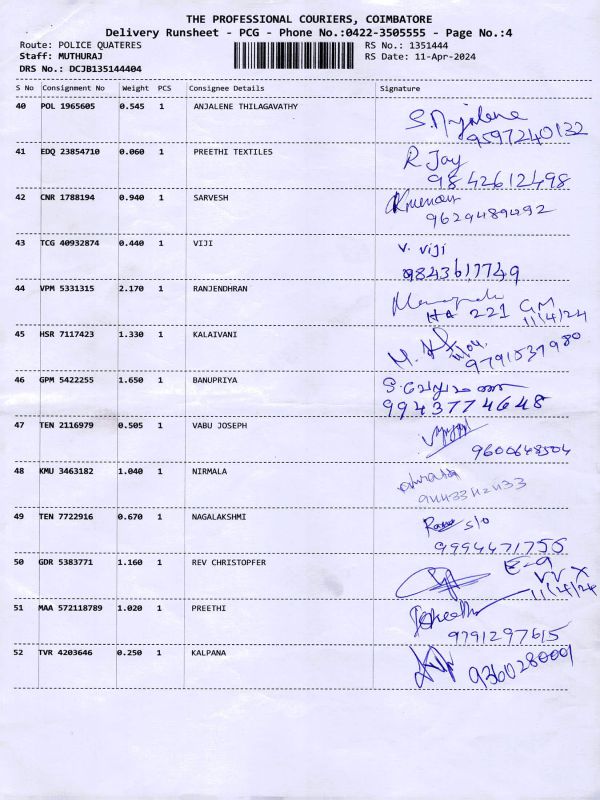 THE PROFESSIONAL COURIERS, COIMBATORE
Delivery Runsheet - PCG - Phone No.:0422-3505555 - Page No.:4
Route: POLICE QUATERES RS No.: 1351444
Staff: MUTHURAJ RS Date: 11-Apr-2024
DRS No.: DCJB135144404
S No Consignment No Weight PCS Consignee Details Signature
40 POL 1965605 0.545 1 ANJALENE THILAGAVATHY S. Anjalene
9597240132
41 EDQ 23854710 0.060 1 PREETHI TEXTILES R Jay
9842612498
42 CNR 1788194 0.940 1 SARVESH
9629489492
43 TCG 40932874 0.440 1 VIJI V. Viji
9843617749
44 VPM 5331315 2.170 1 RANJENDHRAN
221 GM
11/4/24
45 HSR 7117423 1.330 1 KALAIVANI
9791537980
46 GPM 5422255 1.650 1 BANUPRIYA
9943774648
47 TEN 2116979 0.505 1 VABU JOSEPH
9600648504
48 KMU 3463182 1.040 1 NIRMALA
9443342433
49 TEN 7722916 0.670 1 NAGALAKSHMI s/o
9994471756
50 GDR 5383771 1.160 1 REV CHRISTOPFER E-9
11/4/24
51 MAA 572118789 1.020 1 PREETHI
9791297615
52 TVR 4203646 0.250 1 KALPANA 9360280001